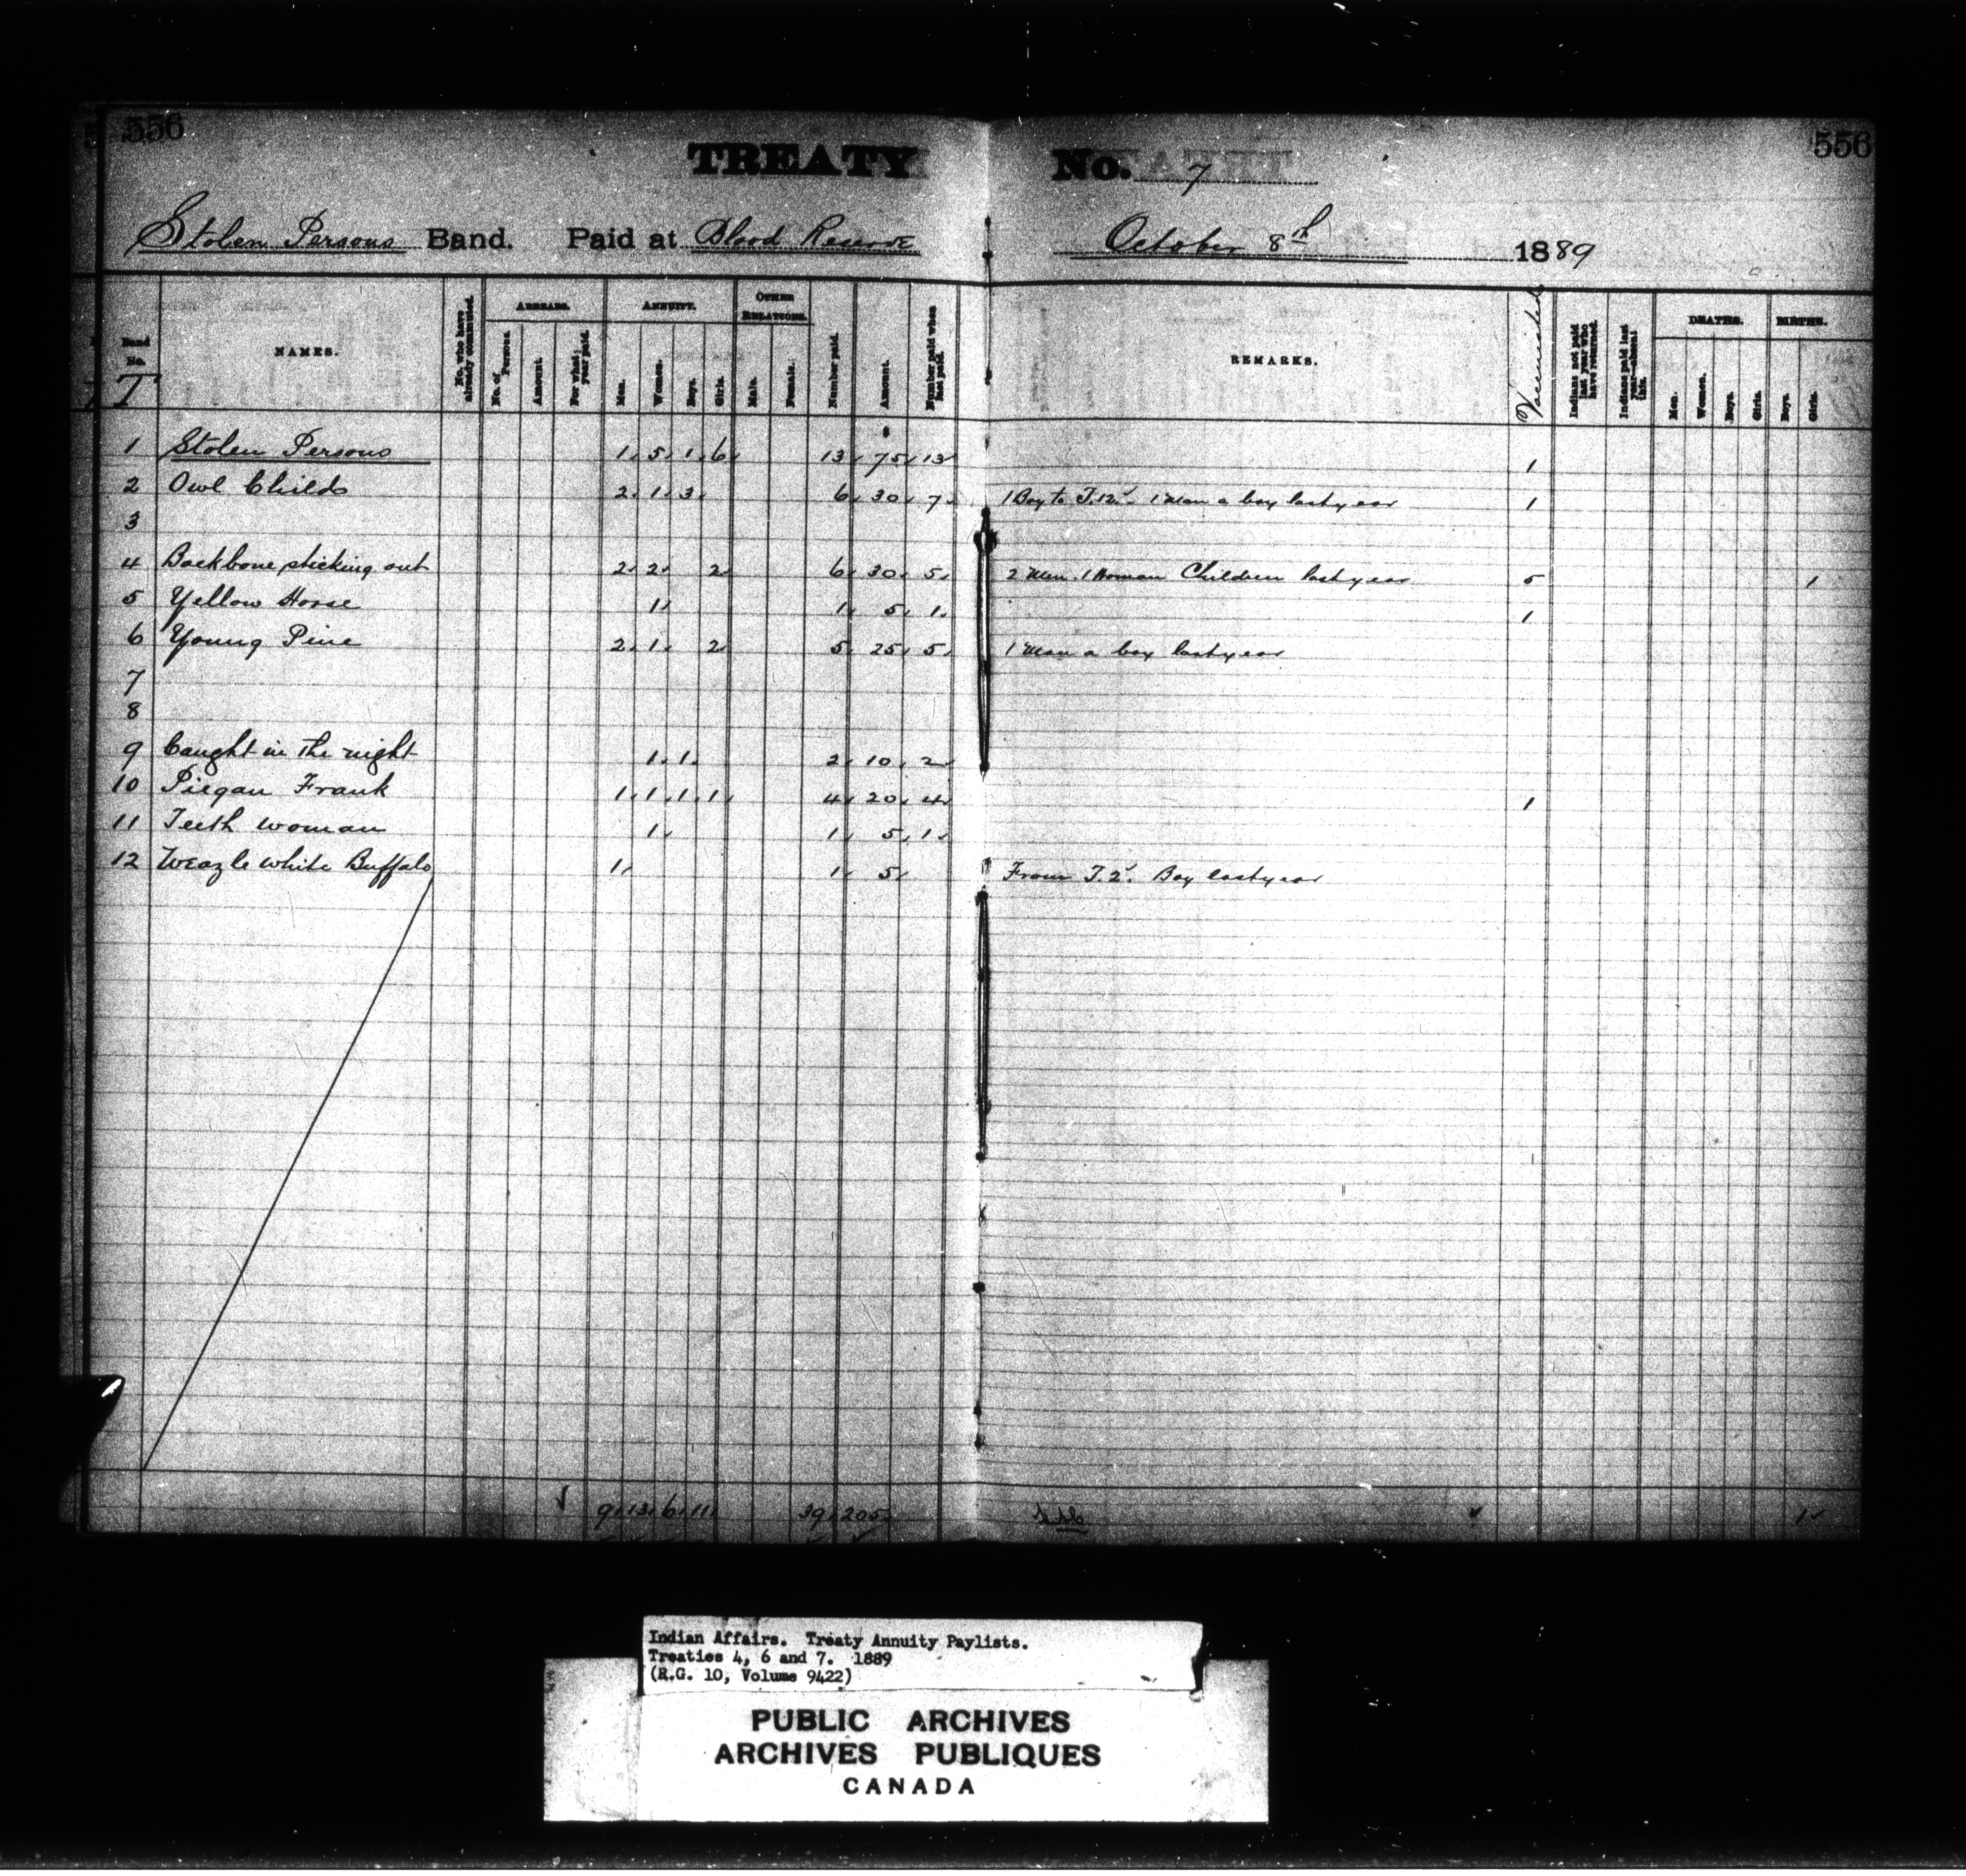 556 556
TREATY No. 7
Stolen Persons Band. Paid at Blood Reserve October 8th 1889
Band No. T
NAMES.
No. who have already commuted.
ARREARS.
No. of Persons.
Amount.
For what year paid.
ANNUITY.
Men.
Women.
Boys.
Girls.
OTHER RELATIONS.
Male.
Female.
Number paid.
Amount.
Number paid when last paid.
REMARKS.
Vaccinated
Indians not paid last year who have returned.
Indians paid last year—absent this.
DEATHS.
Men.
Women.
Boys.
Girls.
BIRTHS.
Boys.
Girls.
1 Stolen Persons 1 5 1 6 13 75 13 1
2 Owl Child 2 1 3 6 30 7 1 Boy to T.12. 1 Man a boy last year 1
3
4 Backbone sticking out 2 2 2 6 30 5 2 Men. 1 Woman Children last year 5 1
5 Yellow Horse 1 1 5 1 1
6 Young Pine 2 1 2 5 25 5 1 Man a boy last year
7
8
9 Caught in the night 1 1 2 10 2
10 Piegan Frank 1 1 1 1 4 20 4 1
11 Teeth woman 1 1 5 1
12 Weazle white Buffalo 1 1 5 From T.2. Boy last year
9 13 6 11 39 205 1
Indian Affairs. Treaty Annuity Paylists.
Treaties 4, 6 and 7. 1889
(R.G. 10, Volume 9422)
PUBLIC ARCHIVES
ARCHIVES PUBLIQUES
CANADA